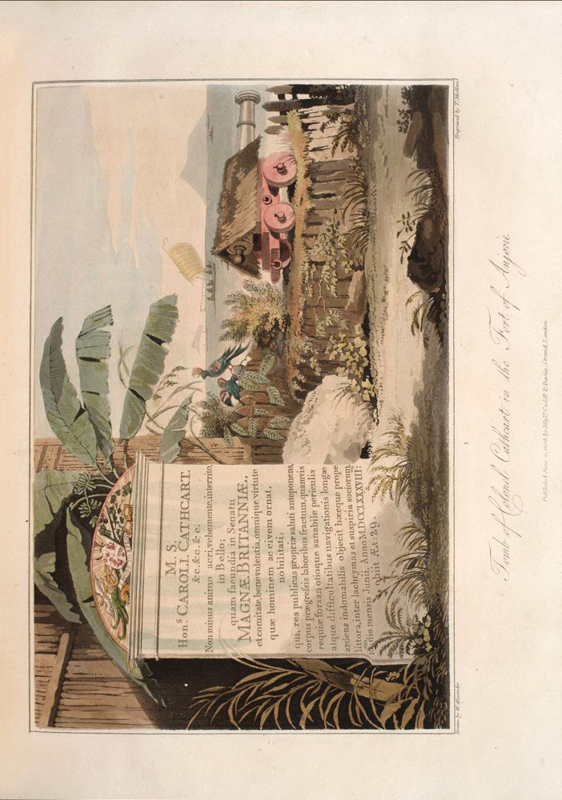 M. S.
Hon.s CAROLI CATHCART.
&c. &c. &c.
Non minus animo acri, vehemente, interrito,
in Bello;
quam facundia in Senatu
MAGNÆ BRITANNIÆ.,
et comitate, benevolentia, omnique virtute
quæ hominem ac civem ornat.
nobilitati;
qui, res publicas propriæ saluti anteponens,
corpus prægressis laboribus fractum, quamvis
requie forsan otioque sanabile periculis
atque difficultatibus navigationis longæ
ardens indomabilis objecit hæcque prope
littora, inter lachrymas et suspiria sociorum,
die mensis Junii, Anno MDCCLXXXVIII:
obiit Æt: 29.
Drawn by W. Alexander
Engraved by T. Medland
Tomb of Colonel Cathcart in the Fort of Anjerie.
Published June 11, 1806, by Mess.rs Cadell & Davies, Strand, London.